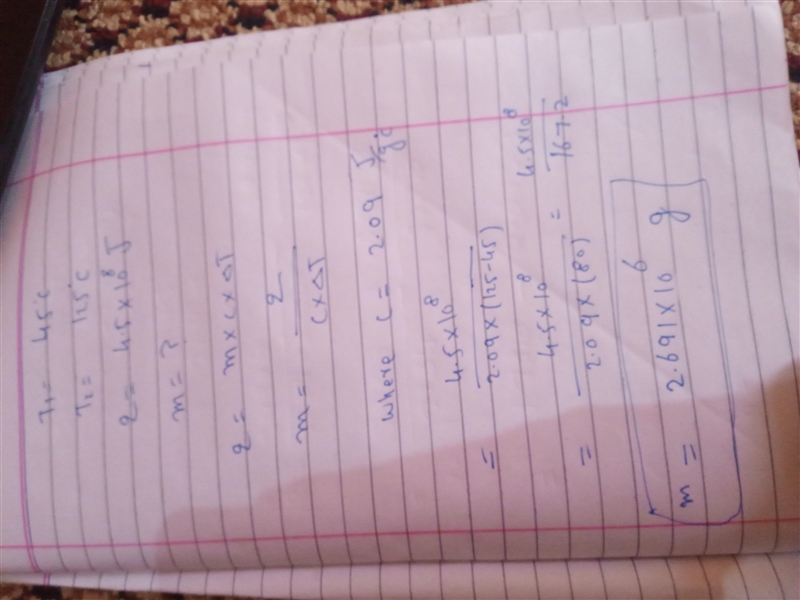 T₁ = 45°C
T₂ = 125°C
q = 4.5×10⁸ J
m = ?
q = m×c×ΔT
m = q / c×ΔT
where c = 2.09 J/g°C
= 4.5×10⁸ / 2.09×(125-45)
= 4.5×10⁸ / 2.09×(80) = 4.5×10⁸ / 167.2
m = 2.691×10⁶ g